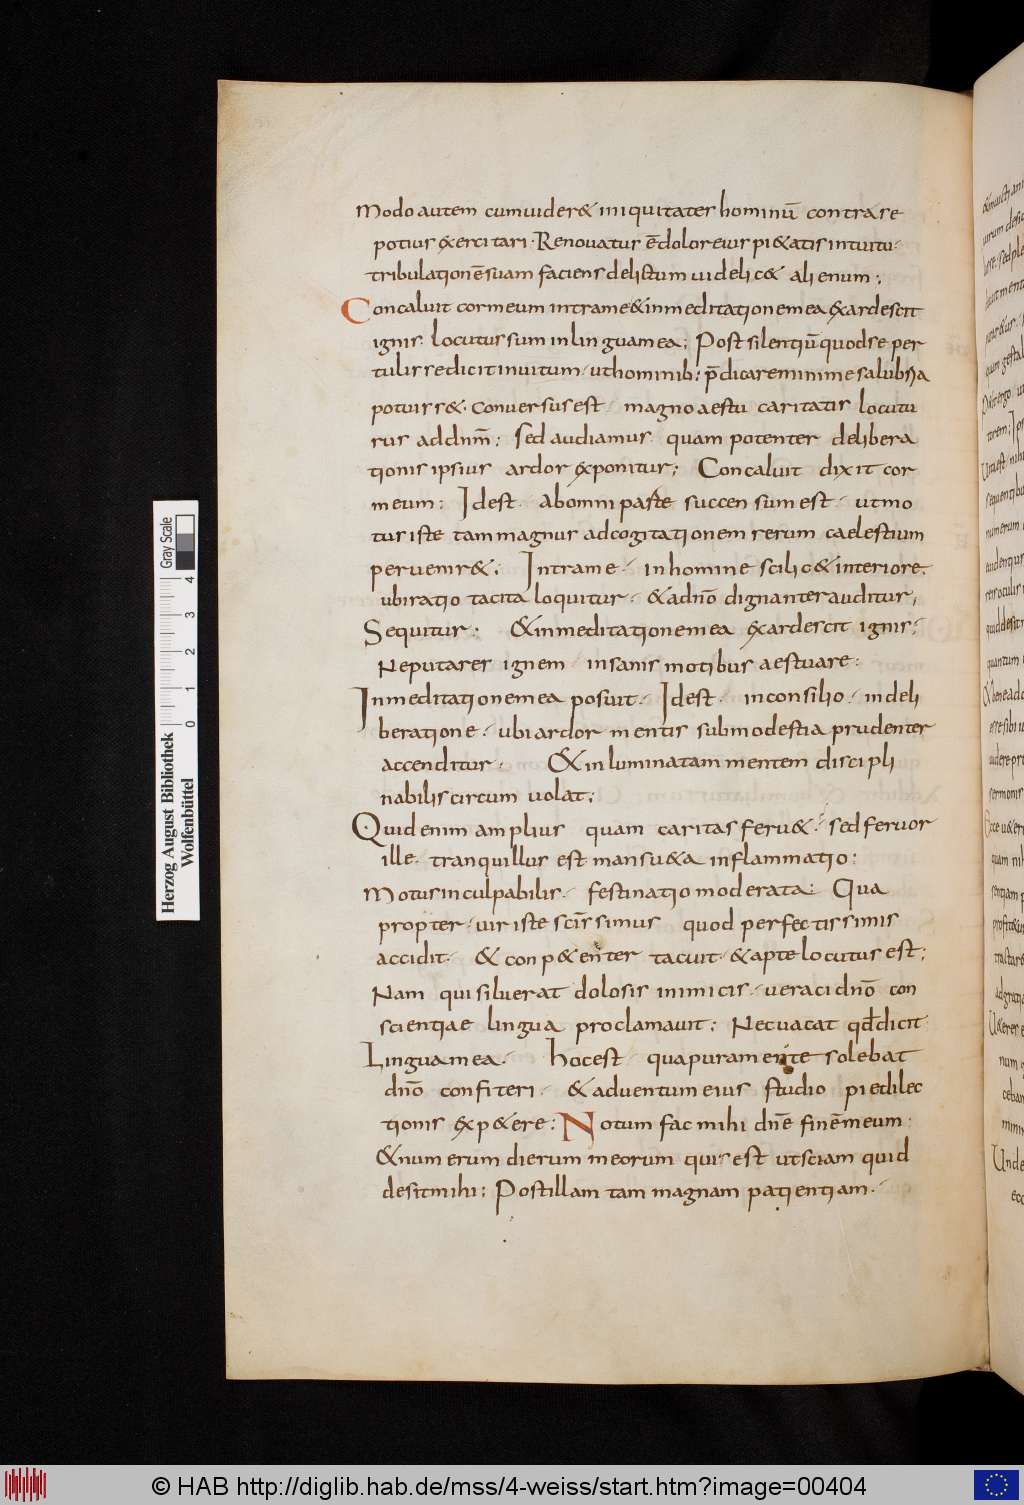 Modo autem cumuider& iniquitater hominū contra se
potius exercitari · Renouatus ē dolor eius pi&atis intuitu ·
tribulationē suam faciens delictum uidelic& alienum ;
Concaluit cor meum intra me & in meditatione mea exardescit
ignis · locutus sum in lingua mea ; Post silentiū quod se per
tulisse dicit inuitum · ut hominib; p̄dicare minime salubria
potuiss& · conuersus est · magno aestu caritatis locutu
rus ad dnm̄ ; Sed audiamus quam potenter delibera
tionis ipsius ardor exponitur ; Concaluit dixit cor
meum ; Id est · ab omni parte succensum est · ut mo
tus iste tam magnus ad cogitationem rerum caelestium
perueniss& ; Intra me · in homine scilic& interiore ·
ubi ratio tacita loquitur · & a dnō dignanter auditur ;
Sequitur ; & in meditatione mea exardescit ignis ;
Ne putares ignem insanis motibus aestuare ;
In meditatione mea posuit · Id est · in consilio · in deli
beratione · ubi ardor mentis sub modestia prudenter
accenditur · & in luminatam mentem discipli
nabilis circum uolat ;
Quid enim amplius quam caritas feru& · sed feruor
ille · tranquillus est mansu&a inflammatio ;
Motus inculpabilis · festinatio moderata ; Qua
propter · uir iste scīssimus quod perfectissimis
accidit · & conp&enter tacuit · & apte locutus est ;
Nam qui siluerat dolosis inimicis · ueraci dnō con
scientiae lingua proclamauit ; Nec uacat qđ dicit
Lingua mea · hoc est qua pura mente solebat
dnō confiteri · & aduentum eius studio pie dilec
tionis exp&ere ; Notum fac mihi dnē finē meum ·
& numerum dierum meorum qui est ut sciam quid
desit mihi ; Post illam tam magnam patientiam ·
Herzog August Bibliothek
Wolfenbüttel
0 1 2 3 4
Gray Scale
© HAB http://diglib.hab.de/mss/4-weiss/start.htm?image=00404